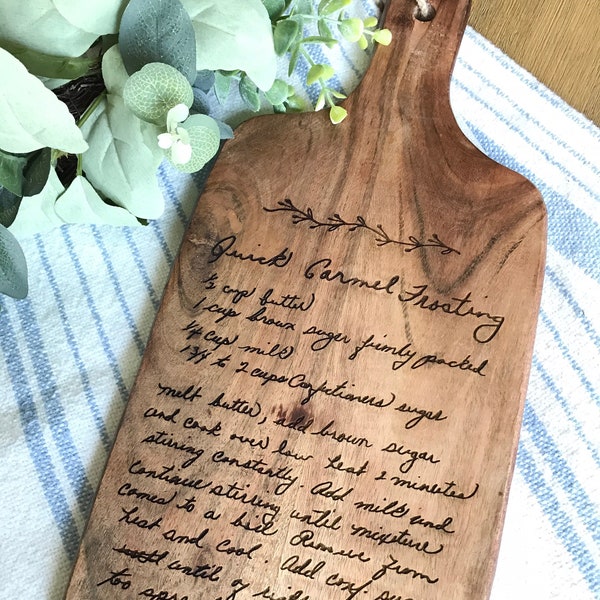 Quick Carmel Frosting
½ cup butter
1 cup brown sugar firmly packed
¼ cup milk
1 3/4 to 2 cups Confectioners sugar
melt butter, add brown sugar
and cook over low heat 2 minutes
stirring constantly. Add milk and
continue stirring until mixture
comes to a boil Remove from
heat and cool. Add conf.
until of
too